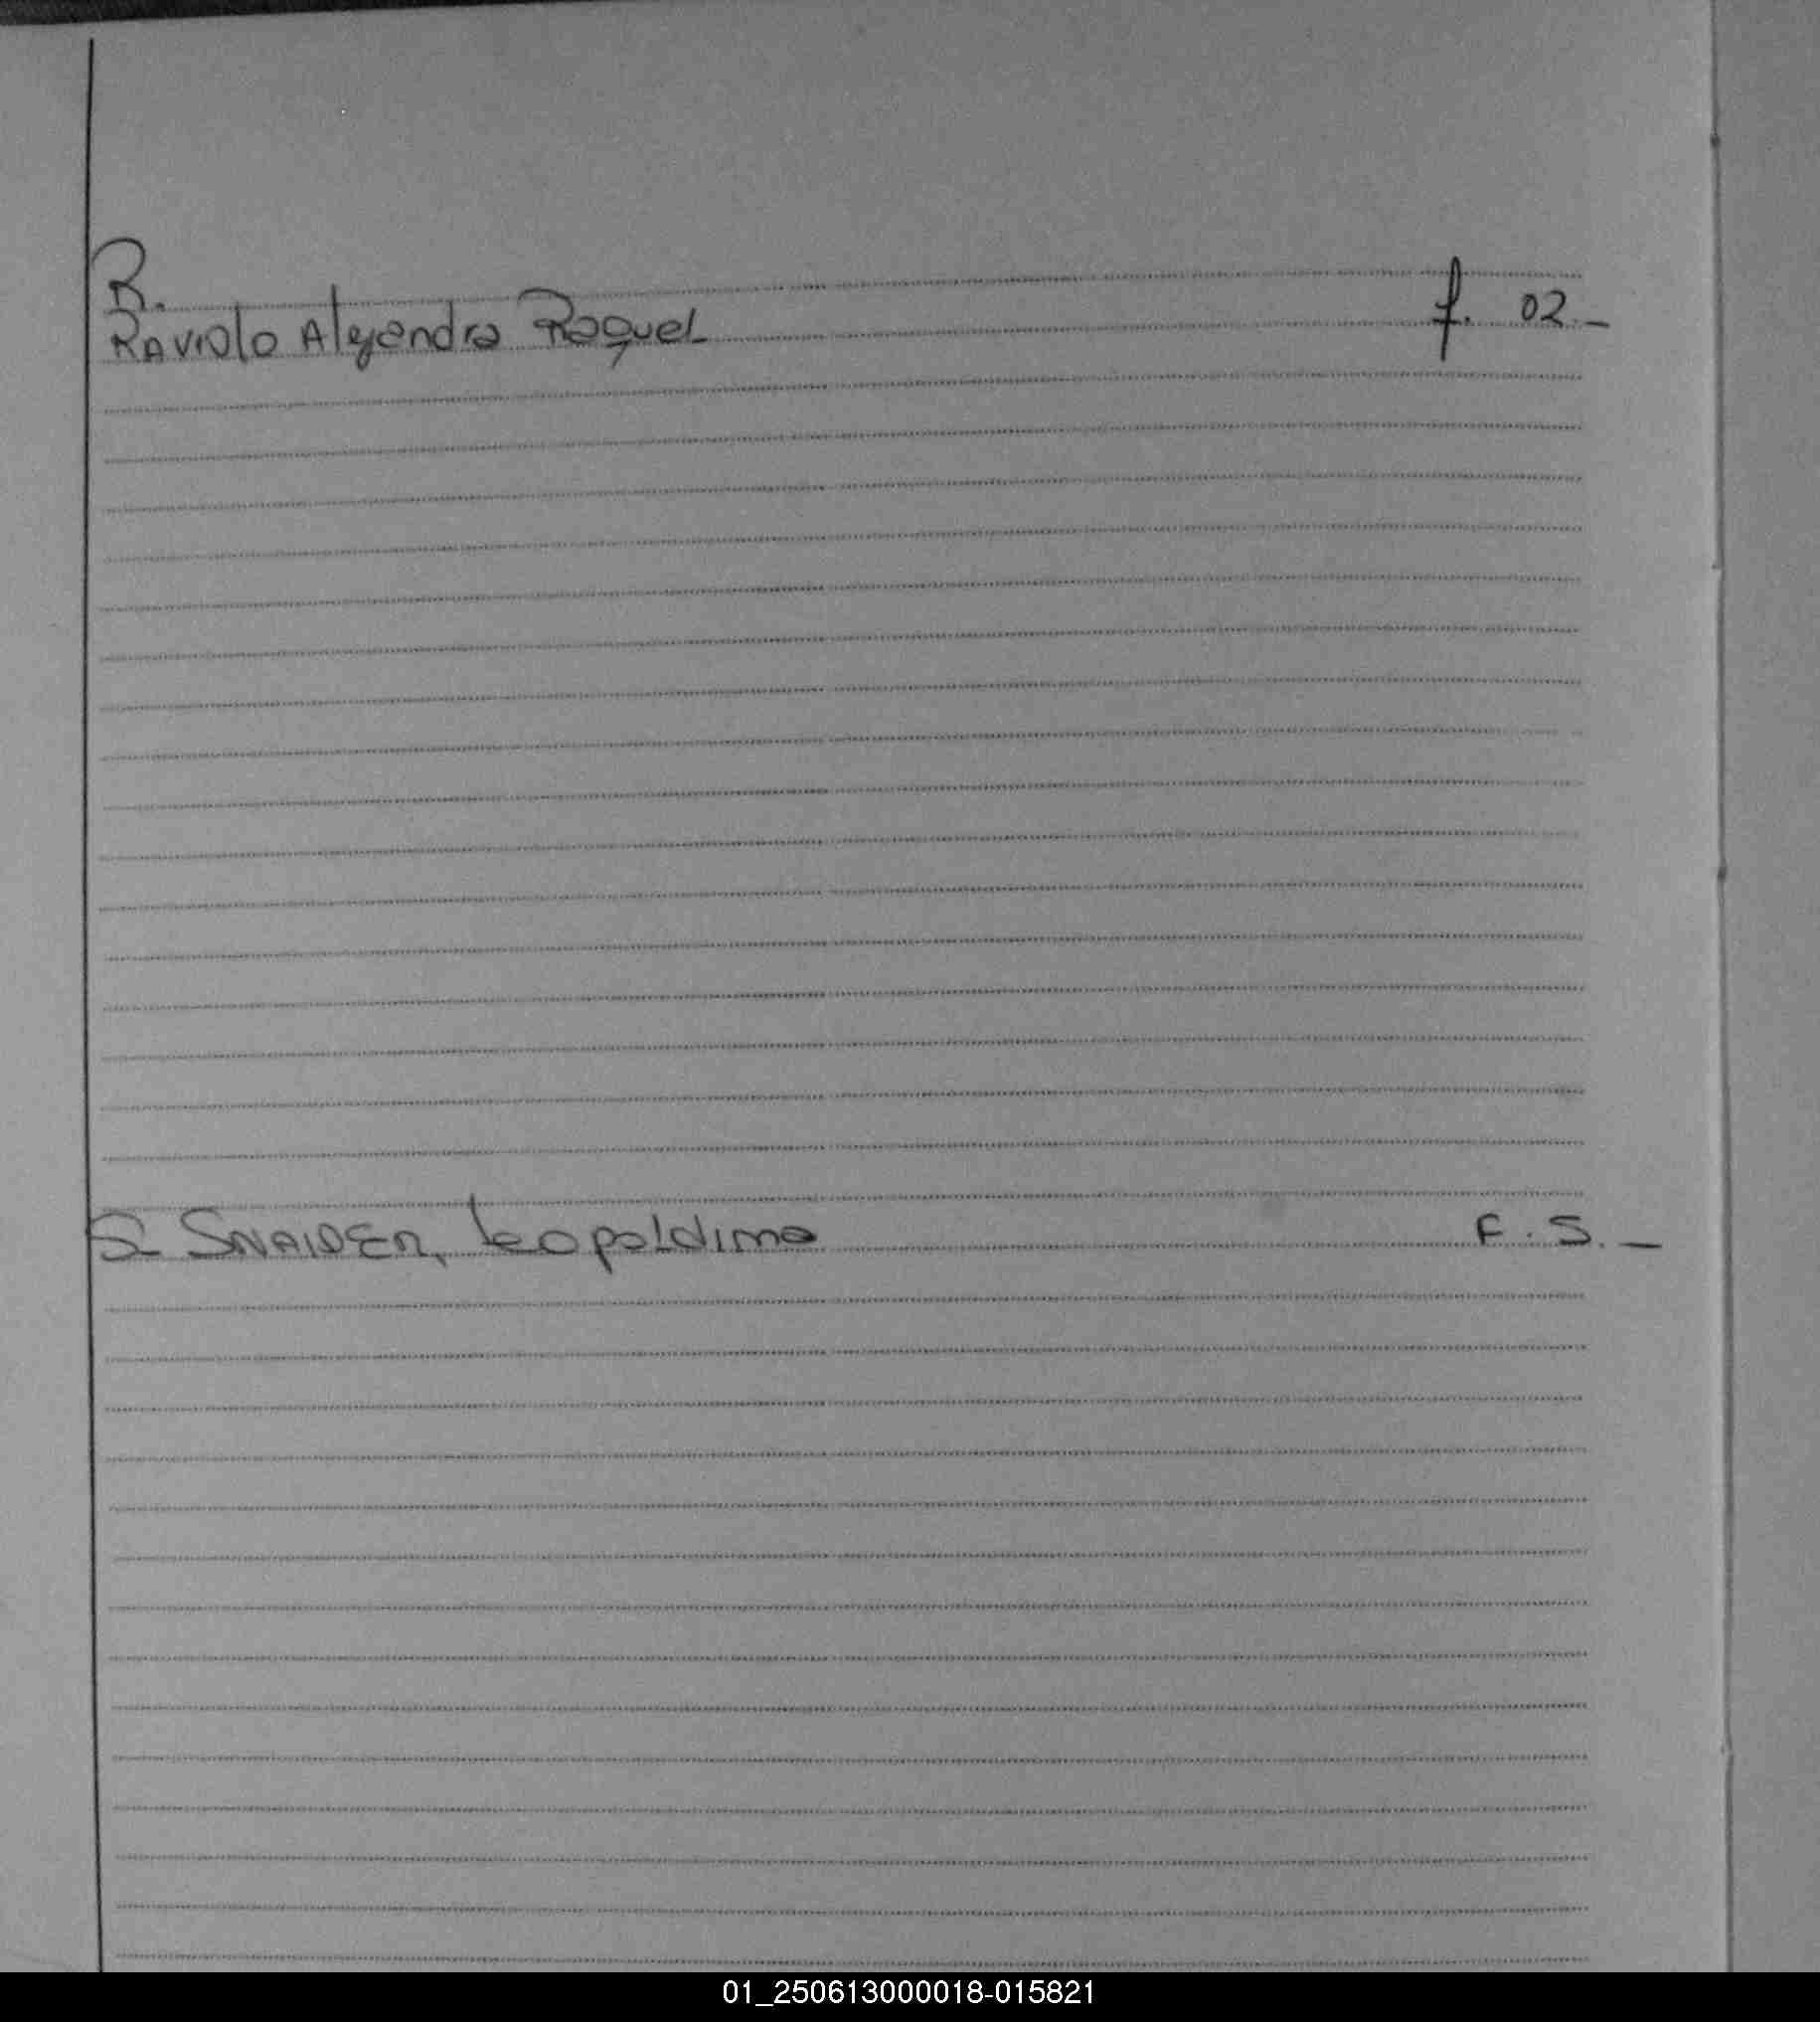 R.
Raviolo Alejandra Raquel f. 02.-
S- SNAIDER, Leopoldina F. 5.-
01_250613000018-015821